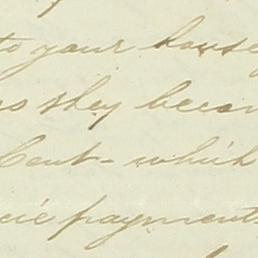 to your house
as they becom
Cent - which
cie payments